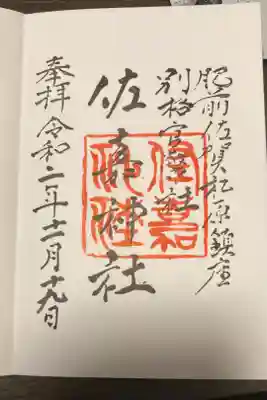 肥前佐賀松原鎮座
別格官幣社
佐嘉神社
奉拝 令和二年十二月十九日